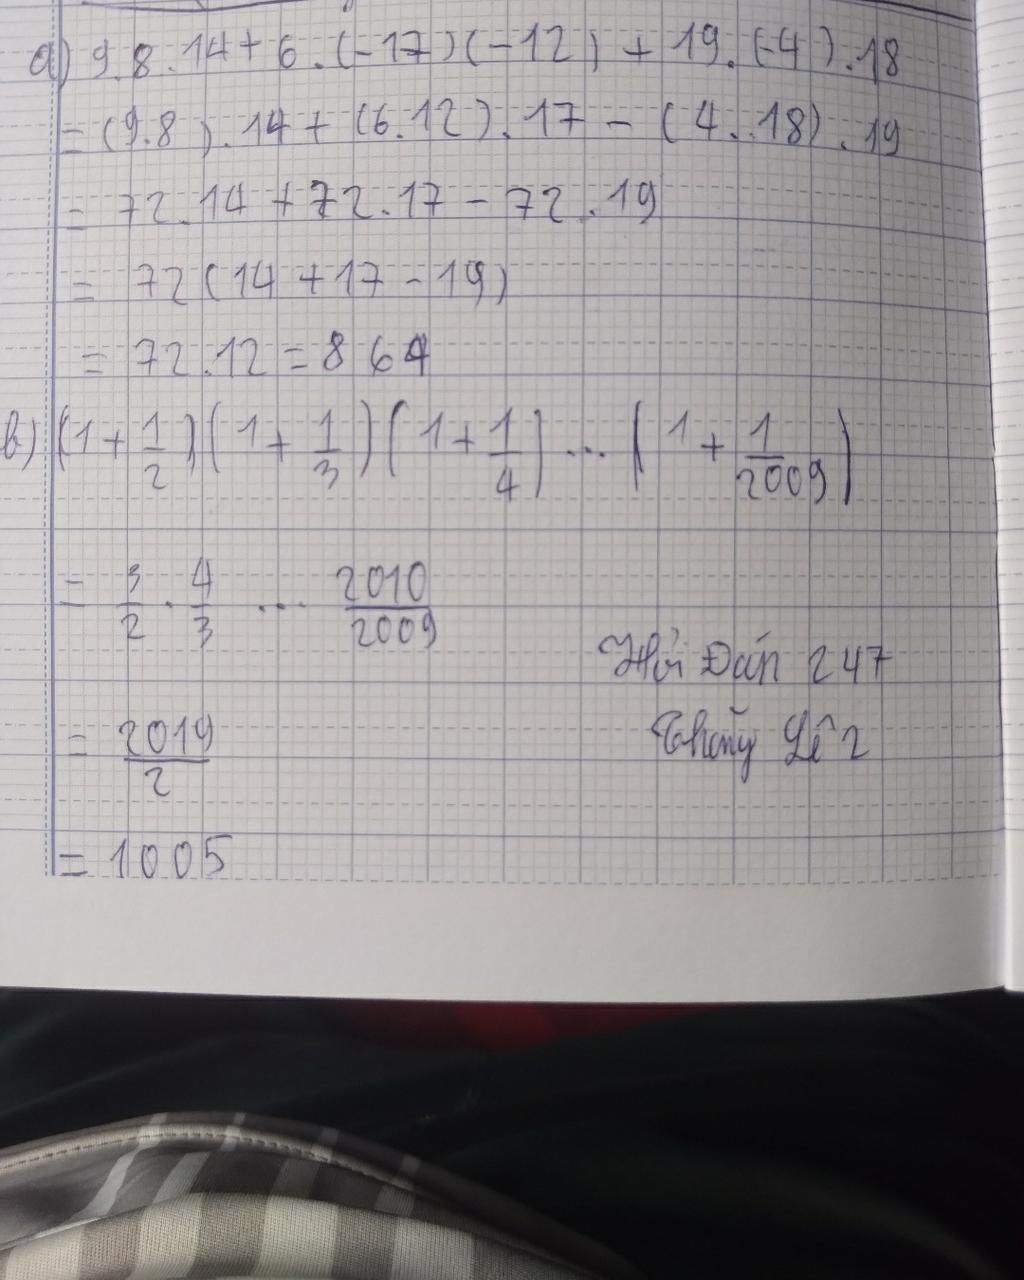 a) 9.8.14+6.(-17)(-12)+19.(-4).18
=(9.8).14+(6.12).17-(4.18).19
= 72.14+72.17-72.19
= 72(14+17-19)
= 72.12=864
b) (1+1/2)(1+1/3)(1+1/4)...(1+1/2009)
= 3/2 . 4/3 ... 2010/2009
Hỏi Đáp 247
= 2019/2
= 1005